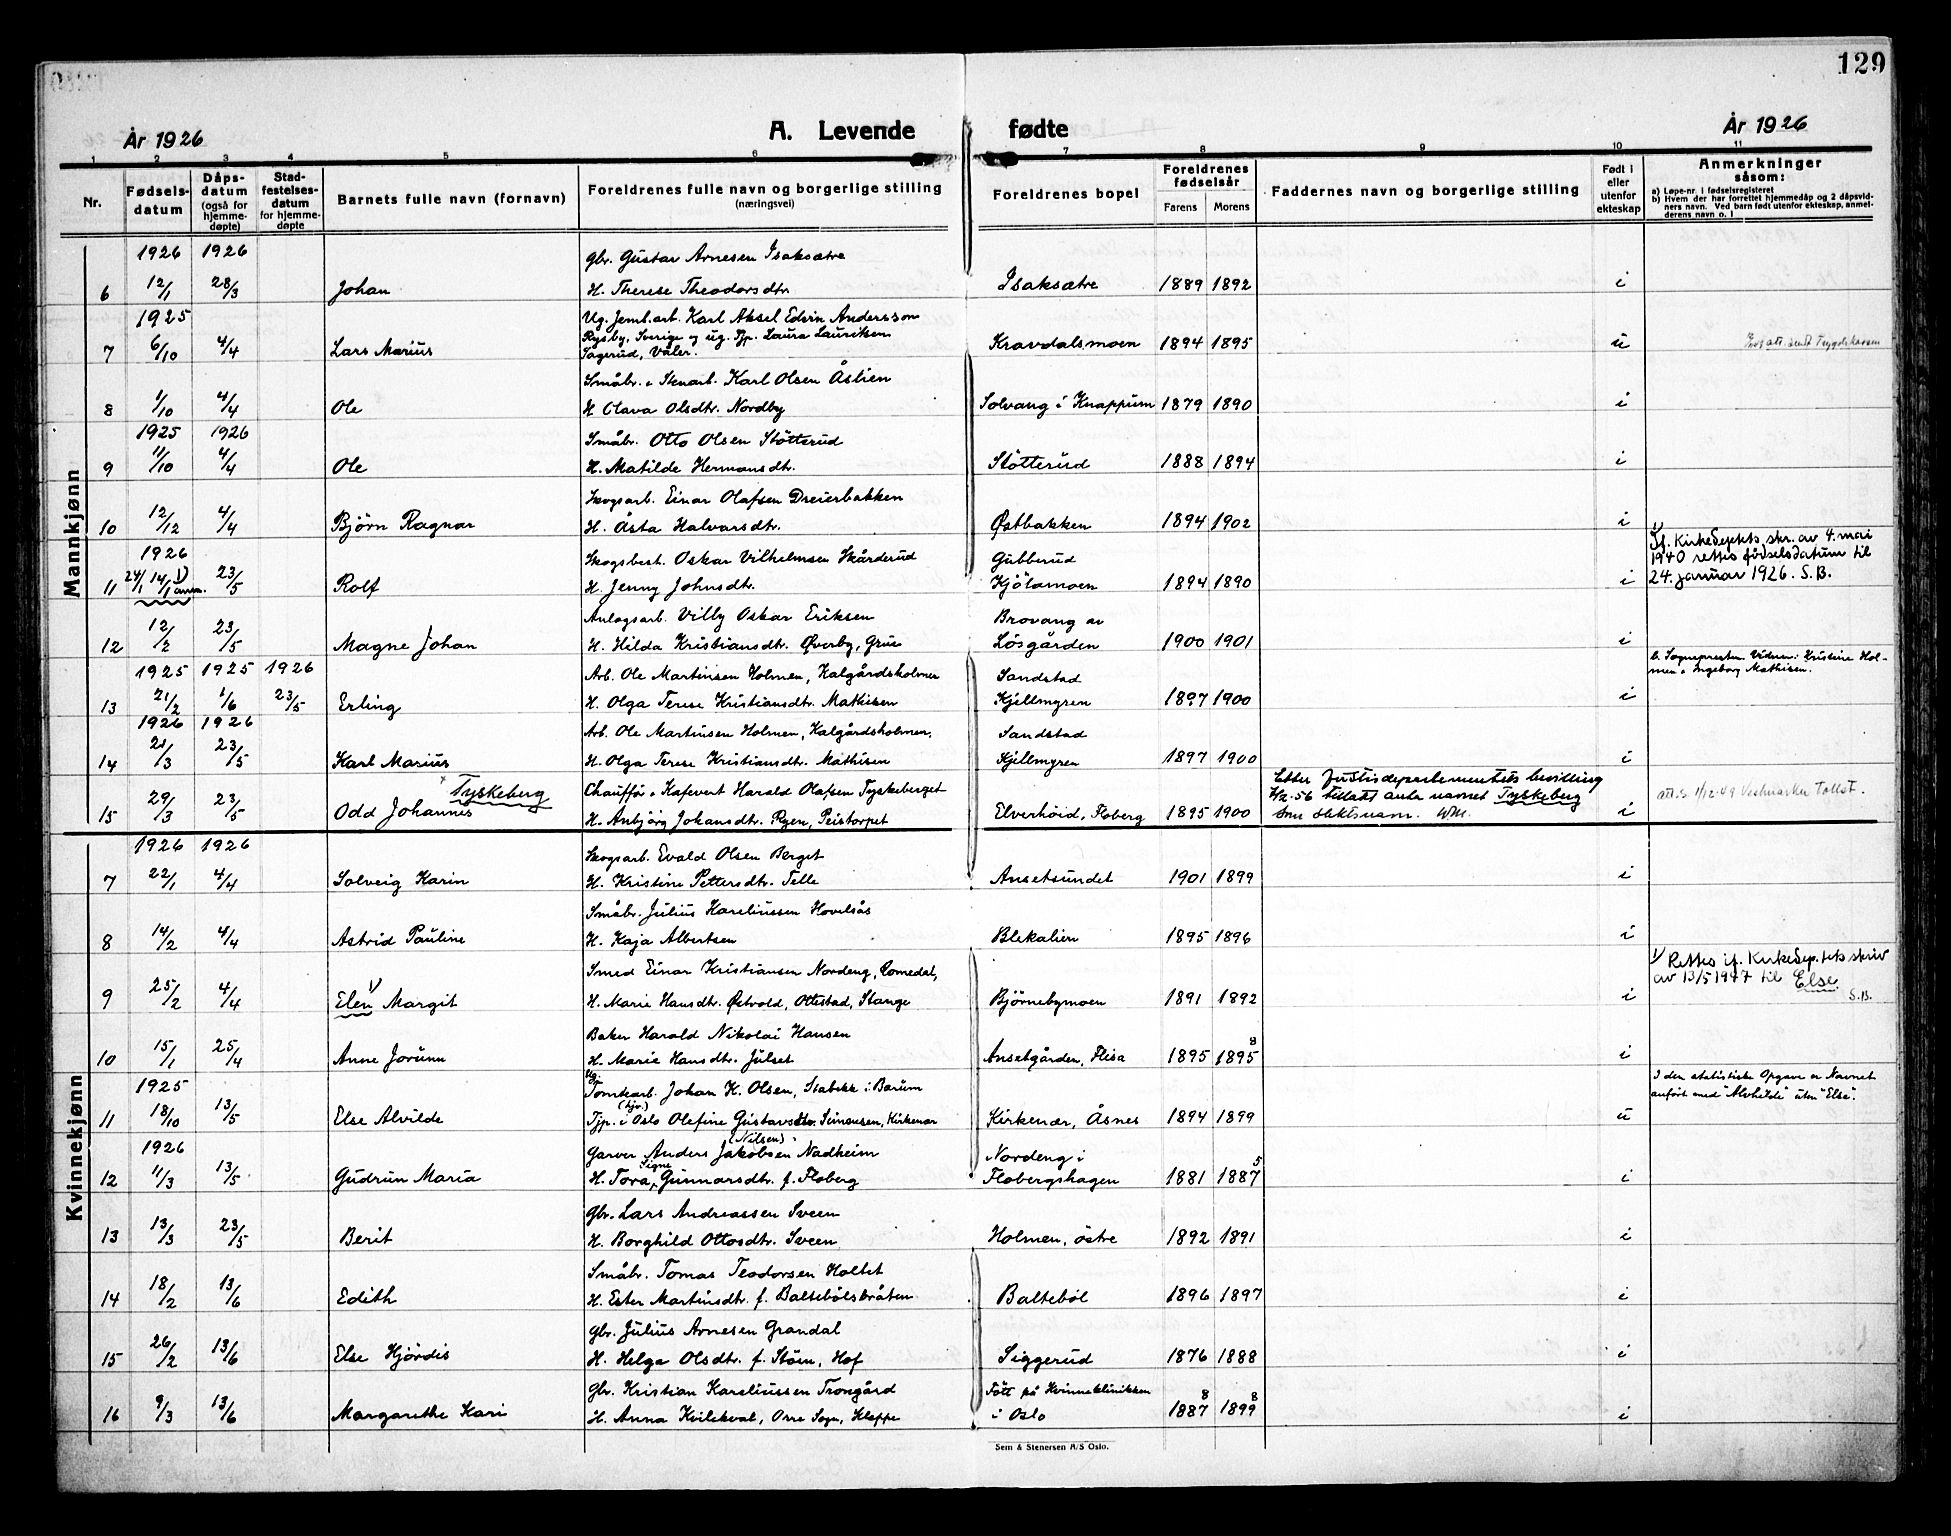 129
År 1926
A. Levende fødte
År 1926
1 2 3 4 5 6 7 8 9 10 11
Nr.
Fødselsdatum
Dåpsdatum (også for hjemmedøpte)
Stadfestelsesdatum for hjemmedøpte
Barnets fulle navn (fornavn)
Foreldrenes fulle navn og borgerlige stilling (næringsvei)
Foreldrenes bopel
Foreldrenes fødselsår
Farens Morens
Faddernes navn og borgerlige stilling
Født i eller utenfor ekteskap
Anmerkninger såsom:
a) Løpe-nr. i fødselsregisteret
b) Hvem der har forrettet hjemmedåp og 2 dåpsvidners navn. Ved barn født utenfor ekteskap, anmelderens navn o. l
Mannkjønn
1926 1926 Gbr. Gustav Arnesen Isaksætre
6 12/1 28/3 Johan H. Therese Theodorsdtr. Isaksætre 1889 1892 i
1925 Ug. Jernb.arb. Karl Aksel Edvin Andersson
Rysby, Sverige og ug. Tjp. Laura Lauriksen
7 6/10 4/4 Lars Marius Sagerud, Våler. Kravdalsmoen 1894 1895 u
Småbr. & Stenarb. Karl Olsen Åslien
8 1/10 4/4 Ole H. Olava Olsdtr. Nordby Solvang i Knappum 1879 1890 i
1925 1926 Småbr. Otto Olsen Stötterud
9 11/10 4/4 Ole H. Matilde Hermansdtr. Stötterud 1888 1894 i
Skogsarb. Einar Olafsen Dreierbakken
10 12/12 4/4 Björn Ragnar H. Åsta Halvarsdtr. Østbakken 1894 1902 i
1926 Skogsbest. Oskar Vilhelmsen Skårderud Gubberud
11 24/1 14/1 1) anm. 23/5 Rolf H. Jenny Johnsdtr. Kjölamoen 1894 1890 i
1) If. Kirkedepts skr. av 4. mai
1940 rettes fødselsdatum til
24. januar 1926. S.B.
Anlagsarb. Villy Oskar Eriksen Brovang av
12 12/2 23/5 Magne Johan H. Hilda Kristiansdtr. Øverby, Grue Lösgården 1900 1901 i
1925 1925 1926 Arb. Ole Martinsen Holmen, Kalgårdsholmen Sandstad
13 21/2 1/6 23/5 Erling H. Olga Terese Kristiansdtr. Mathisen Kjellmyren 1897 1900 i
b. Sognepresten. Vidner: Kristine Holmen & Ingeborg Mathisen.
1926 1926 Arb. Ole Martinsen Holmen, Kalgårdsholmen, Sandstad
14 21/3 23/5 Karl Marius H. Olga Terese Kristiansdtr. Mathisen Kjellmyren 1897 1900 i
x Tyskeberg Chauffør & Kafevert Harald Olafsen Tyskeberget
15 29/3 23/5 Odd Johannes H. Anbjørg Johansdtr. Ryen, Peistorpet Elverhöid, Floberg 1895 1900 i
Etter Justisdepartementets bevilling
2/2.56 tillatt anta navnet Tyskeberg
som slektsnavn.
att. s. 1/12-49 Vestmarka Tollst.
Kvinnekjønn
1926 1926 Skogsarb. Evald Olsen Berget
7 22/1 4/4 Solveig Karin H. Kristine Pettersdtr. Telle Ansetsundet 1901 1899 i
Småbr. Julius Kareliussen Hovelsås
8 14/2 4/4 Astrid Pauline H. Kaja Albertsen Blekalien 1895 1896 i
Smed Einar Kristiansen Nordeng, Romedal,
9 25/2 4/4 Elen 1) Margit H. Marie Hansdtr. Østvold, Ottestad, Stange Björnebymoen 1891 1892 i
1) Rettes if. Kirkedep.tets skriv
av 13/5 1947 til Else.
S.B.
Baker Harald Nikolai Hansen
10 15/1 25/4 Anne Jorunn H. Marie Hansdtr. Julset Ansetgården, Flisa 1895 1895 8 i
1925 Ug. Tomtearb. Johan K. Olsen, Stabekk i Bærum
11 18/10 13/5 Else Alvilde Tjp. (hjv.) i Oslo Olefine Gustavsdtr. Simensen, Kirkenær Kirkenær, Åsnes 1894 1899 u
I den statistiske Opgave er Navnet
anført med "Alvhilde" uten "Else".
1926 Garver Anders Jakobsen (Nilsen) Nadheim Nordeng i
12 11/3 13/5 Gudrun Maria H. Tora Signe Gunnarsdtr. f. Floberg Flobergshagen 1881 1887 5 i
Gbr. Lars Andreassen Sveen
13 13/3 23/5 Berit H. Borghild Ottosdtr. Sveen Holmen, östre 1892 1891 i
Småbr. Tomas Teodorsen Holtet
14 18/2 13/6 Edith H. Ester Martinsdtr. f. Baltebölsbråten Balteböl 1896 1897 i
Gbr. Julius Arnesen Grandal
15 26/2 13/6 Else Hjördis H. Helga Olsdtr. f. Støen, Hof Siggerud 1876 1888 i
Gbr. Kristian Kareliussen Trongård Född på Kvinneklinikken
16 9/3 13/6 Margarethe Kari H. Anna Kvilekval, Orre Sogn, Kleppe i Oslo 1887 8 1899 8 i
Sem & Stenersen A/S Oslo.